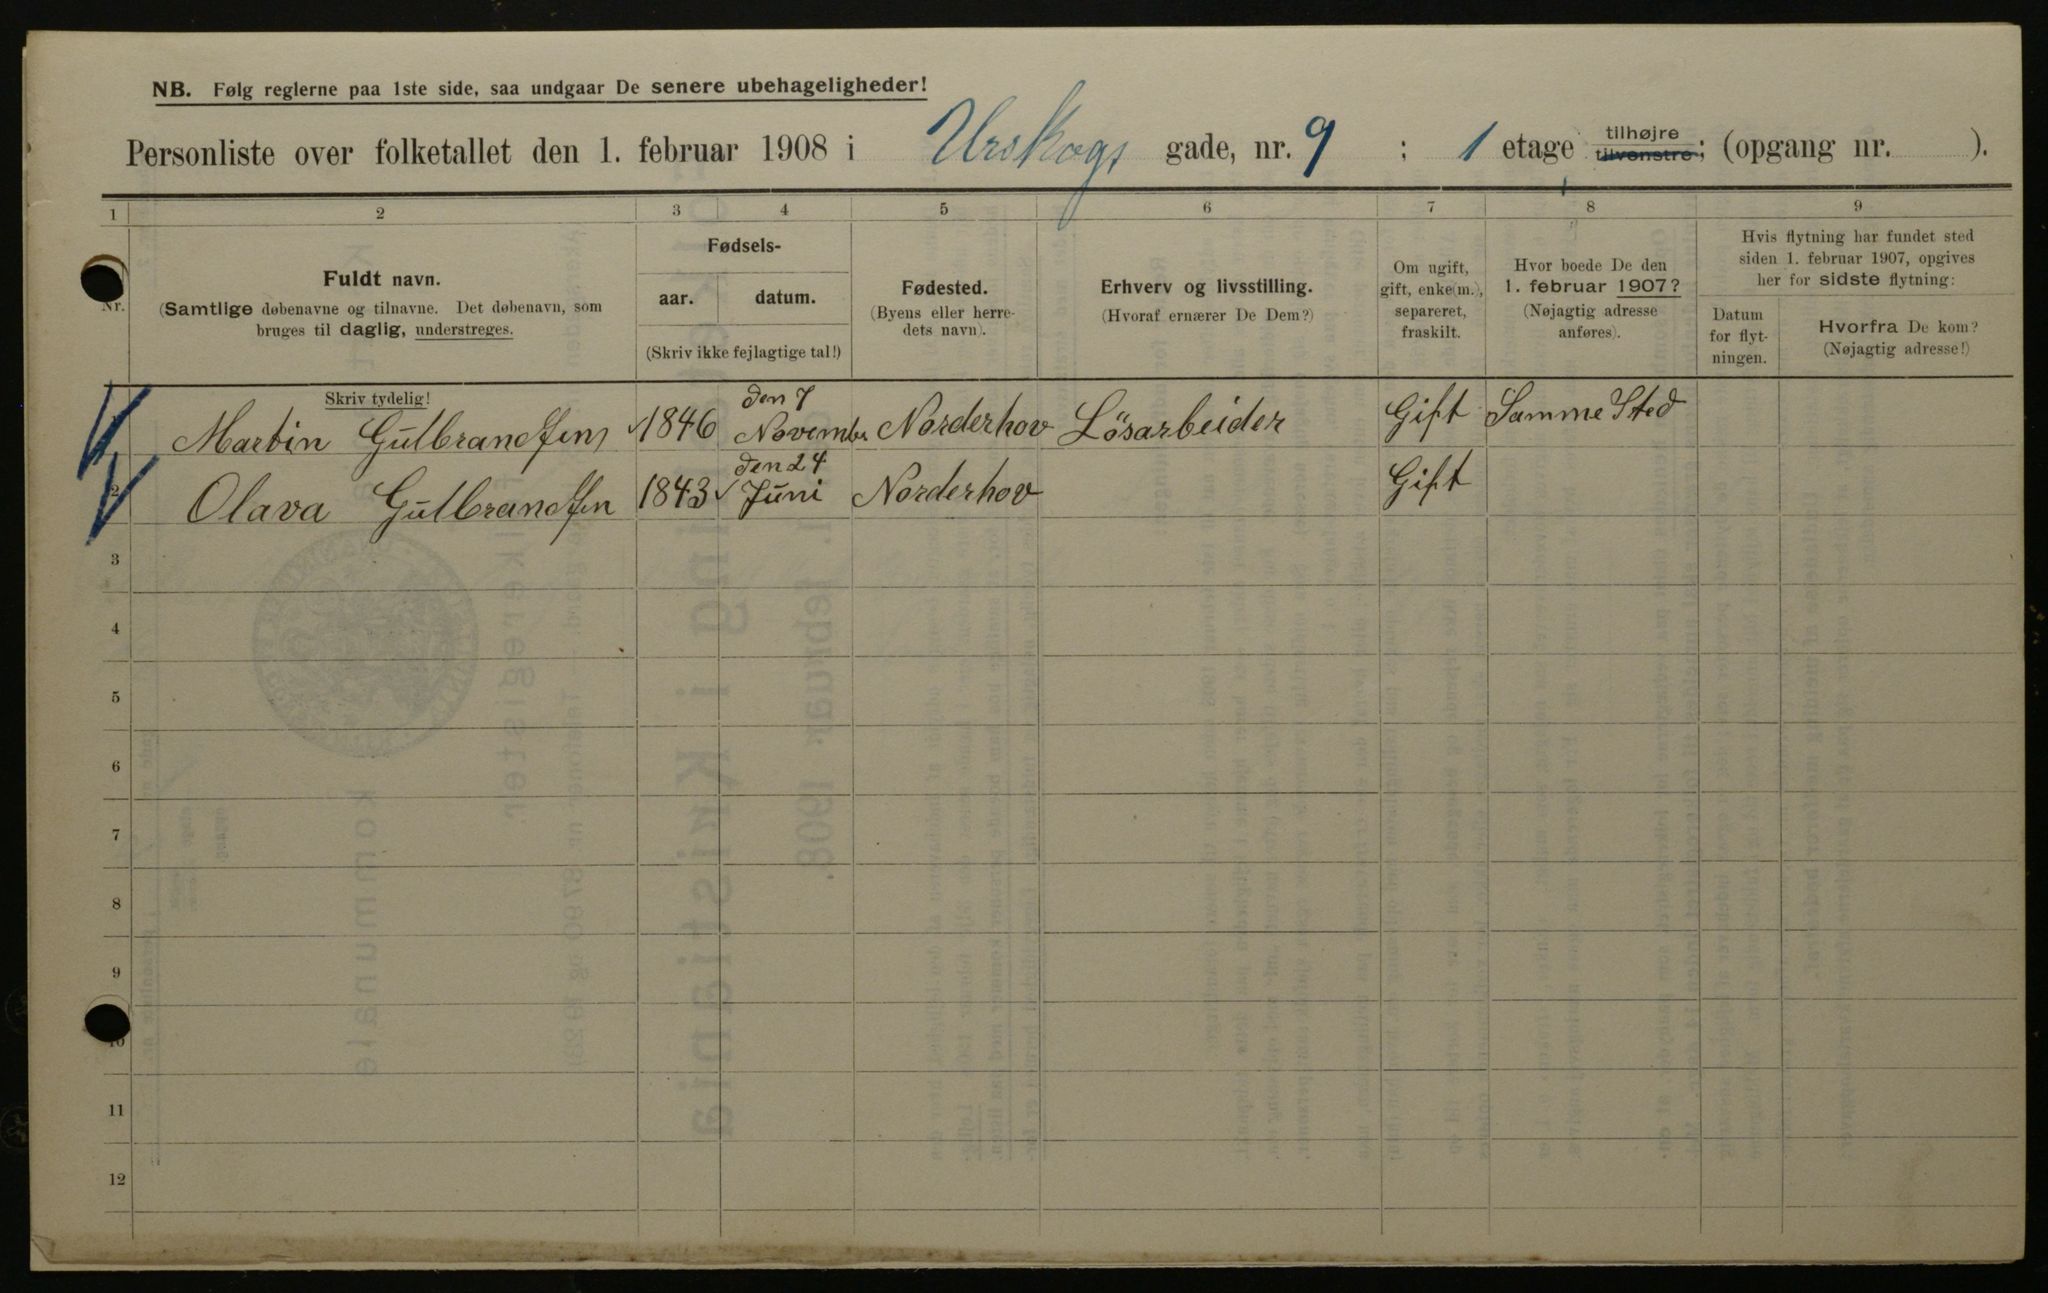 NB. Følg reglerne paa 1ste side, saa undgaar De senere ubehageligheder!
Personliste over folketallet den 1. februar 1908 i Urskogs gade, nr. 9 ; 1 etage tilhøjre tilvenstre; (opgang nr. ).
1 2 3 4 5 6 7 8 9
Nr.
Fuldt navn.
(Samtlige døbenavne og tilnavne. Det døbenavn, som
bruges til daglig, understreges.
Fødsels-
aar. datum.
(Skriv ikke fejlagtige tal!)
Fødested.
(Byens eller herre-
dets navn).
Erhverv og livsstilling.
(Hvoraf ernærer De Dem?)
Om ugift,
gift, enke(m.),
separeret,
fraskilt.
Hvor boede De den
1. februar 1907?
(Nøjagtig adresse
anføres).
Hvis flytning har fundet sted
siden 1. februar 1907, opgives
her for sidste flytning:
Datum
for flyt-
ningen.
Hvorfra De kom?
(Nøjagtig adresse!)
Skriv tydelig!
den 7
Martin Gulbrandsen 1846 Novembr Norderhov Lösarbeider Gift Samme Sted
den 24
2 Olava Gulbrandsen 1843 Juni Norderhov Gift
3
4
5
6
7
8
9
10
11
12